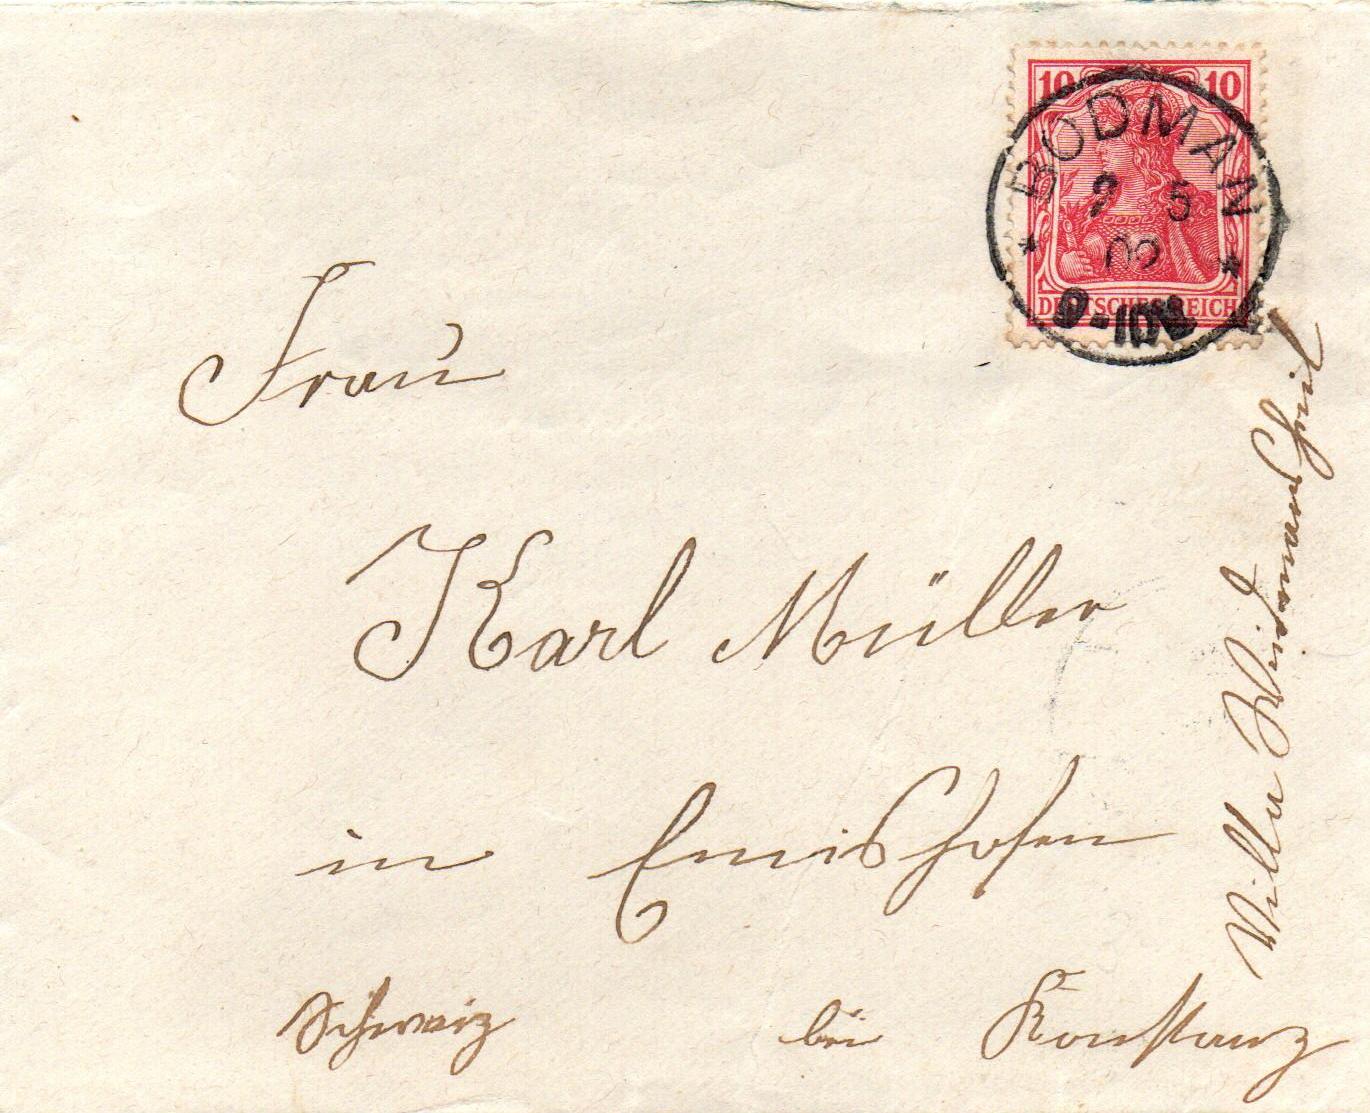 10 10
BODMAN
2 5
02
9-10V
DEUTSCHES REICH
Frau
Karl Müller
in Emishofen
Schweiz bei Konstanz
Villa